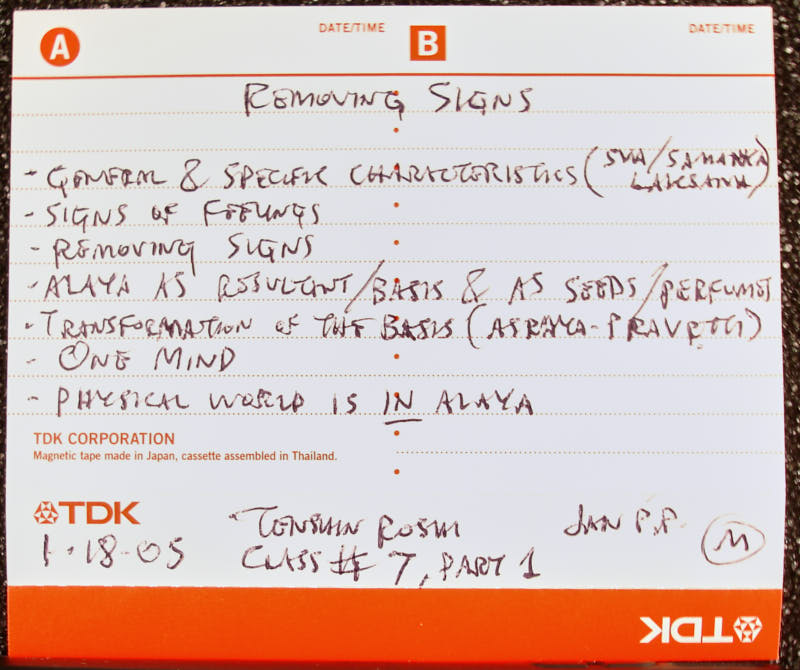 A DATE/TIME B DATE/TIME
REMOVING SIGNS
- GENERAL & SPECIFIC CHARACTERISTICS (SVA/SAMANYA
LAKSANA)
- SIGNS OF FEELINGS
- REMOVING SIGNS
- ALAYA AS RESULTANT/BASIS & AS SEEDS/PERFUMES
- TRANSFORMATION OF THE BASIS (ASRAYA-PRAVRTTI)
- ONE MIND
- PHYSICAL WORLD IS IN ALAYA
TDK CORPORATION
Magnetic tape made in Japan, cassette assembled in Thailand.
TDK
TENSHIN ROSHI JAN P.P.
1-18-05 CLASS # 7, PART 1 M
TDK